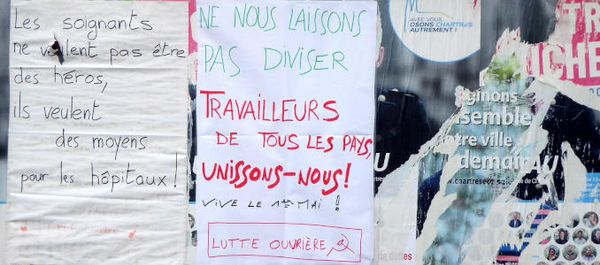 Les soignants
ne veulent pas être
des héros,
ils veulent
des moyens
pour les hôpitaux !
NE NOUS LAISSONS
PAS DIVISER
TRAVAILLEURS
DE TOUS LES PAYS,
UNISSONS-NOUS!
VIVE LE 1er MAI !
LUTTE OUVRIÈRE
AVEC VOUS,
OSONS CHARTRES
AUTREMENT !
ensemble
ville
demain